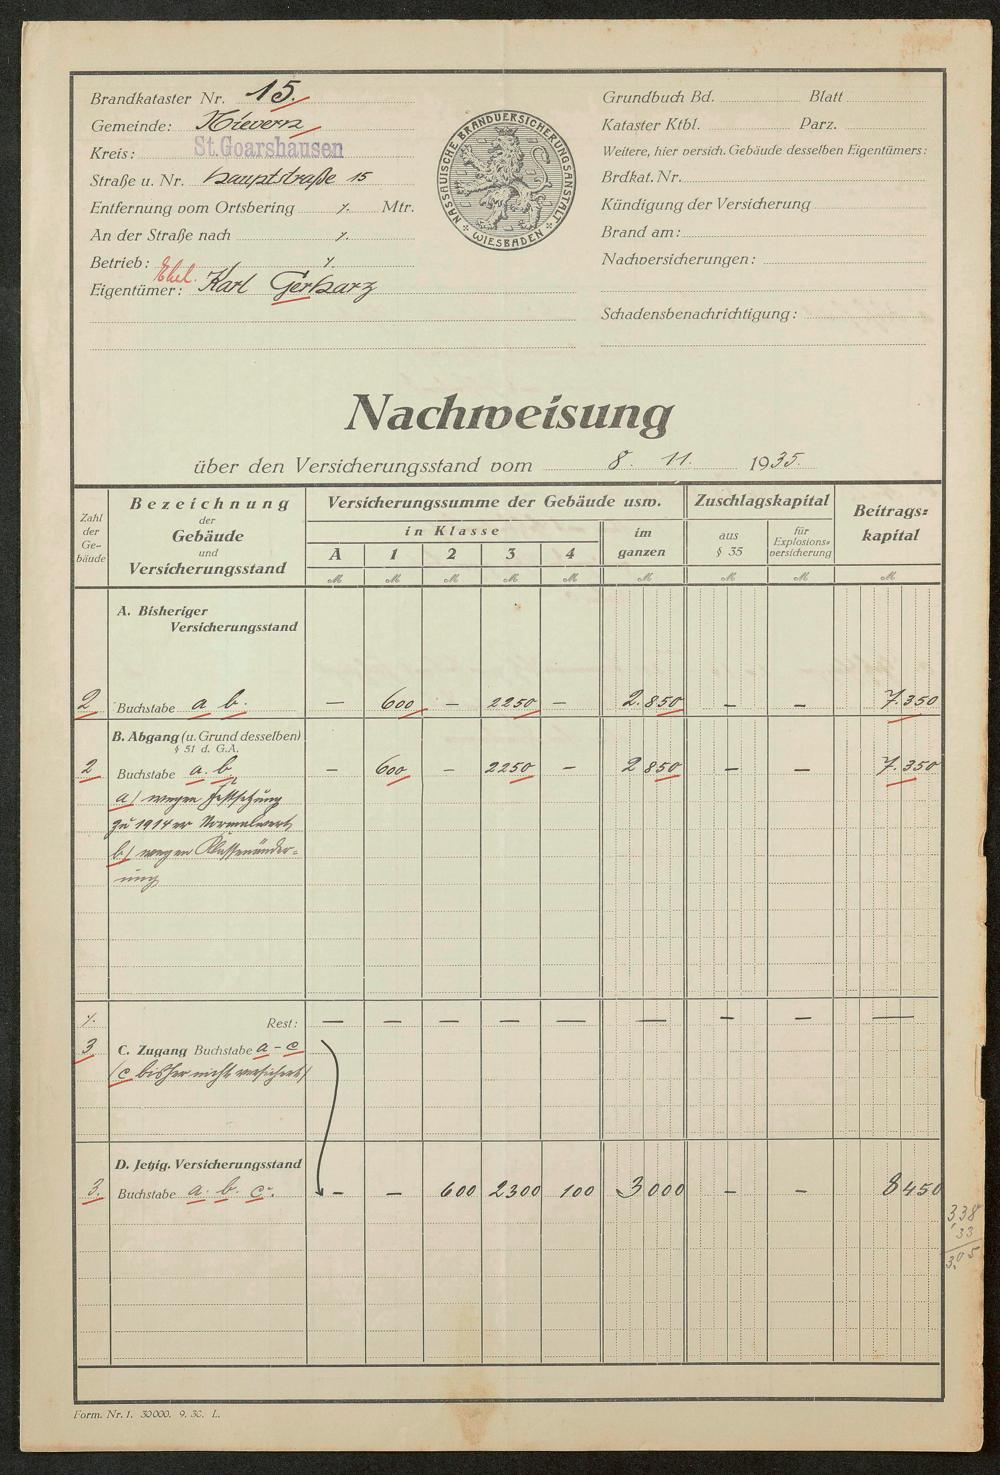 Brandkataster Nr. 15.
Gemeinde: Nievern
Kreis: St.Goarshausen
Straße u. Nr. Hauptstraße 15
Entfernung vom Ortsbering ⁒ Mtr.
An der Straße nach ⁒
Betrieb: ⁒
Ehel.
Eigentümer: Karl Gerharz
NASSAUISCHE BRANDVERSICHERUNGSANSTALT
WIESBADEN
Grundbuch Bd. Blatt
Kataster Ktbl. Parz.
Weitere, hier versich. Gebäude desselben Eigentümers:
Brdkat. Nr.
Kündigung der Versicherung
Brand am:
Nachversicherungen:
Schadensbenachrichtigung:
Nachweisung
über den Versicherungsstand vom 8. 11. 1935.
Zahl der Ge-bäude
Bezeichnung
der
Gebäude
und
Versicherungsstand
Versicherungssumme der Gebäude usw.
in Klasse
A 1 2 3 4
im ganzen
Zuschlagskapital
aus § 35
für Explosions-versicherung
Beitrags-kapital
M M M M M M M M M
A. Bisheriger
Versicherungsstand
2 Buchstabe a b. — 600 — 2250 — 2.850 — — 7.350
B. Abgang (u. Grund desselben)
§ 51 d. G.A.
2 Buchstabe a. b — 600 — 2250 — 2 850 — — 7.350
a) wegen Festsetzung
zu 1914er Normalwert
b) wegen Klassenänder-
ung
⁒ Rest: — — — — — — — — —
3 C. Zugang Buchstabe a - c
(c bisher nicht versichert)
D. Jetzig. Versicherungsstand
3. Buchstabe a. b. c. — — 600 2300 100 3000 — — 8450
338
33
3,05
Form. Nr. 1. 30000. 9. 30. L.